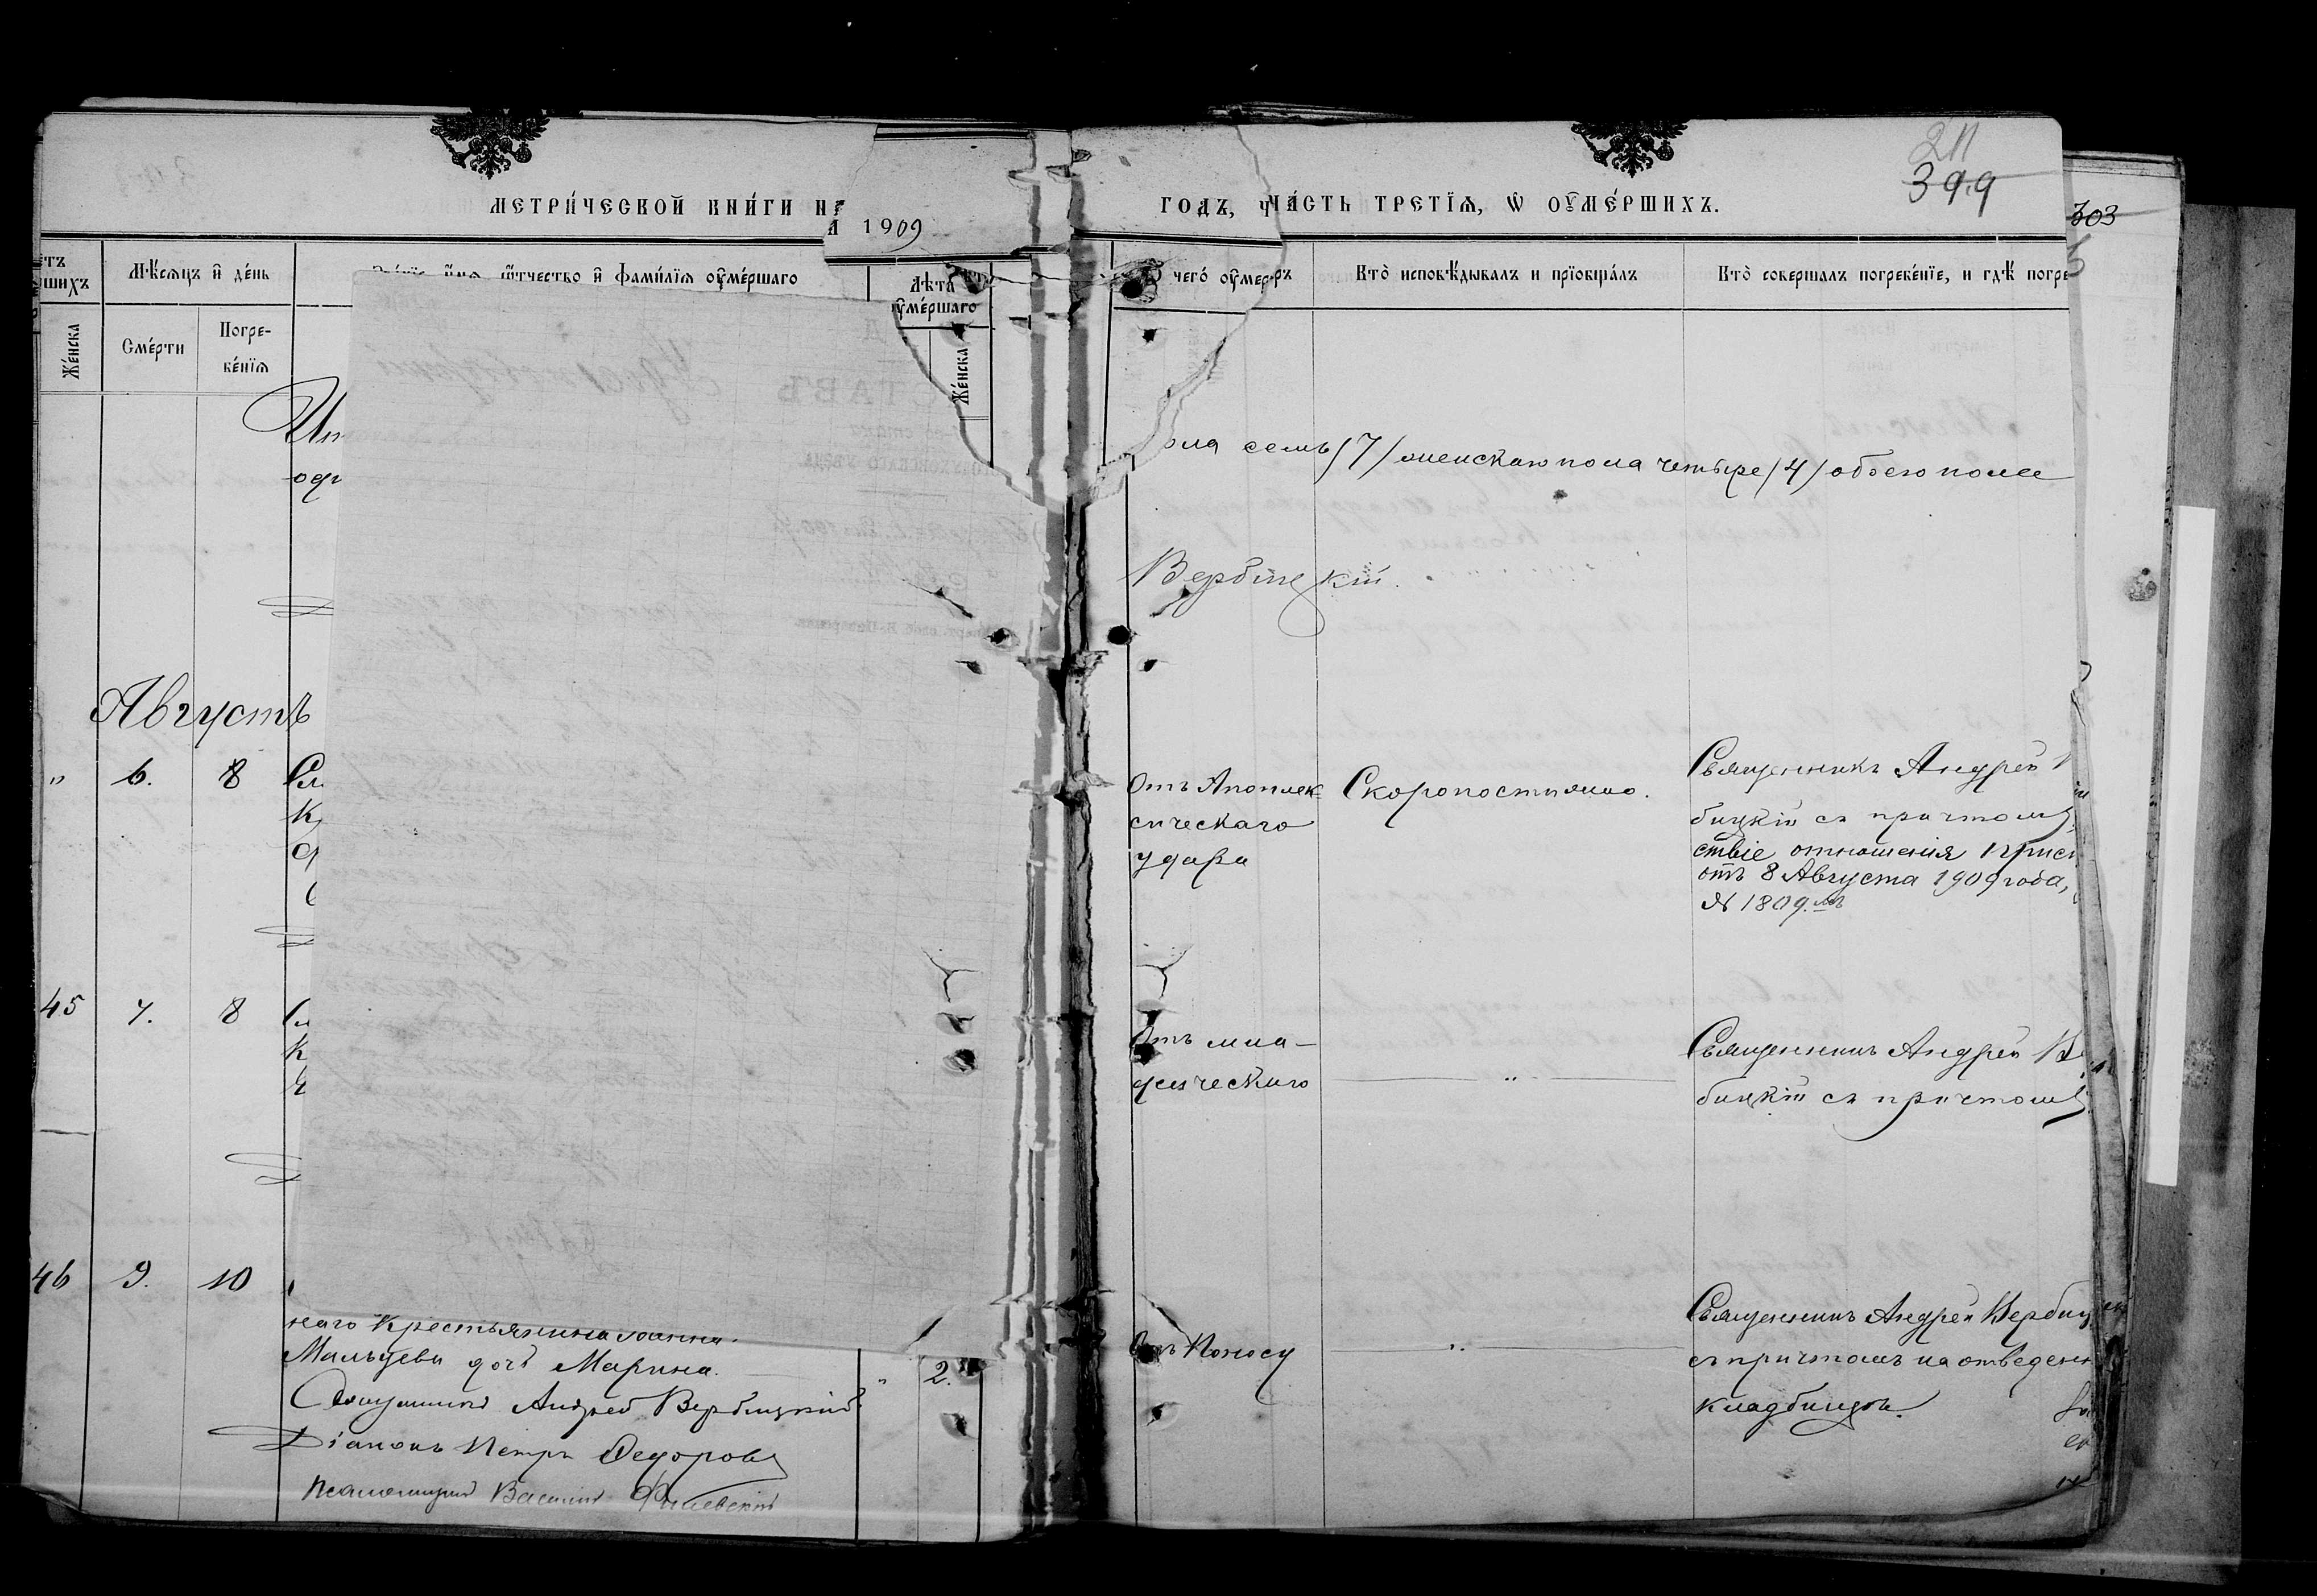 211
399
303
МЕТРИЧЕСКОЙ КНИГИ НА 1909 ГОДЪ, ЧАСТЬ ТРЕТІѦ, Ѡ ОУМЕРШИХЪ.
Мѣсяцъ и день
отчество и фамилія оумершаго
Лѣта оумершаго
чего оумеръ
Кто исповѣдывалъ и пріобщалъ
Кто совершалъ погребеніе, и гдѣ погре
Женска
Смерти
Погре-
бенія
Женска
семь (7) женскаго пола четыре (4) обоего пола
Вербицкій.
Августъ
" 6. 8
Отъ Апоплек-
сическаго
удара
Скоропостижно.
Священникъ Андрей
бицкій съ причтомъ
ствіе отношенія
отъ 8 Августа 1909 года,
№ 1809.
45 7. 8
Отъ мла-
денческаго
"
Священникъ Андрей В
бицкій съ причтомъ
46 9. 10
наго крестьянина Іоанна
Мальцева дочь Марина. " 2.
Отъ Поносу
"
Священникъ Андрей Вербиц
съ причтомъ на отведен
кладбищѣ.
Священникъ Андрей Вербицкій
Діаконъ Петръ Федоровъ
Псаломщикъ Василій